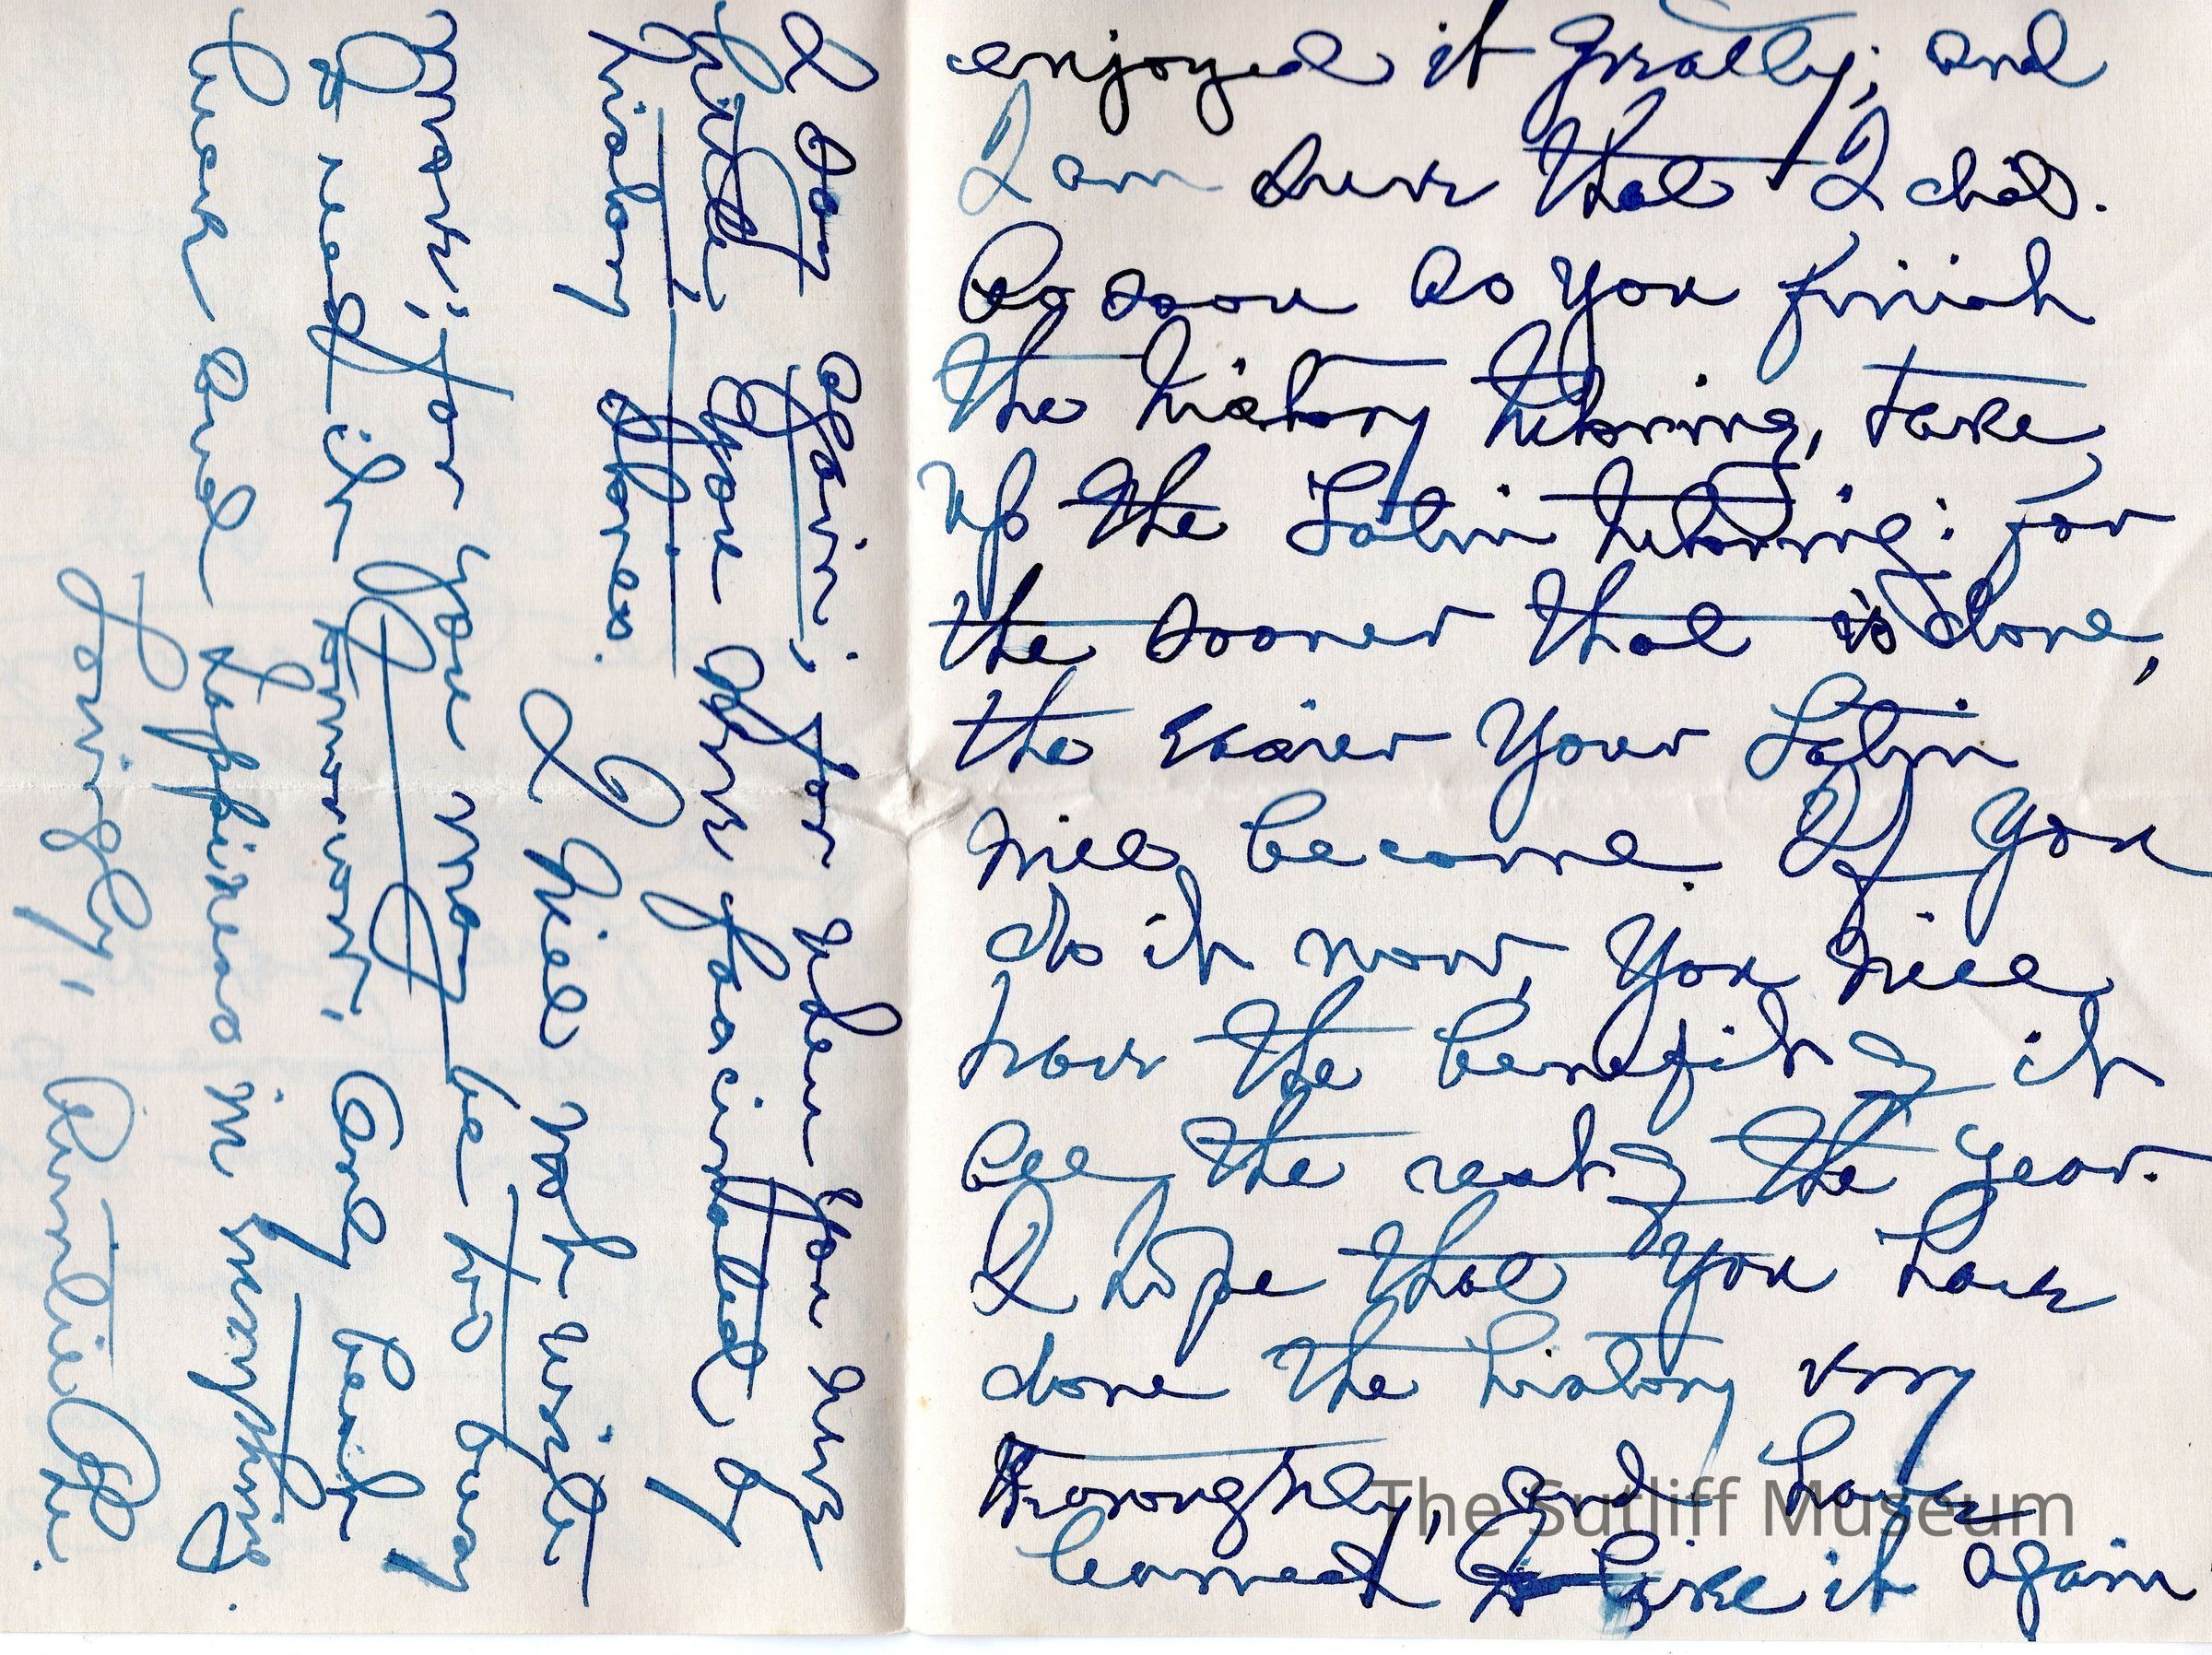 enjoyed it greatly; and
I am sure that I did.
As soon as you finish
the history tutoring, take
up the Latin tutoring: for
the sooner that is done,
the easier your Latin
will become. If you
do it now, you will
have the benefit of it
all the rest of the year.
I hope that you have
done the history very
thoroughly, and have
learned to like it again
I say again; for when you were
little, you were fascinated by
history stories.
I will not write
more; for you may be too busy
to read it Good bye
luck and happiness in everything.
Lovingly,
The Sutliff Museum